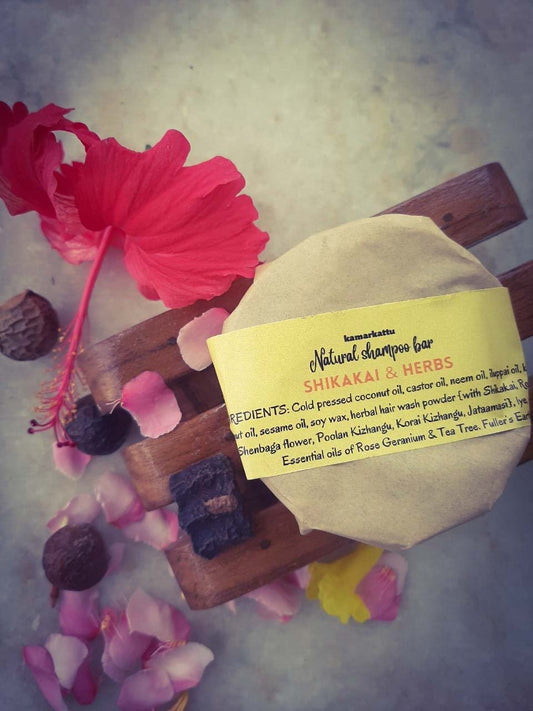 kamarkattu
Natural shampoo bar
SHIKAKAI & HERBS
REDIENTS: Cold pressed coconut oil, castor oil, neem oil, iluppai oil, k
ut oil, sesame oil, soy wax, herbal hair wash powder {with Shikakai, Ro
Shenbaga flower, Poolan Kizhangu, Korai Kizhangu, Jataamasi}, lye
Essential oils of Rose Geranium & Tea Tree. Fuller's Ear